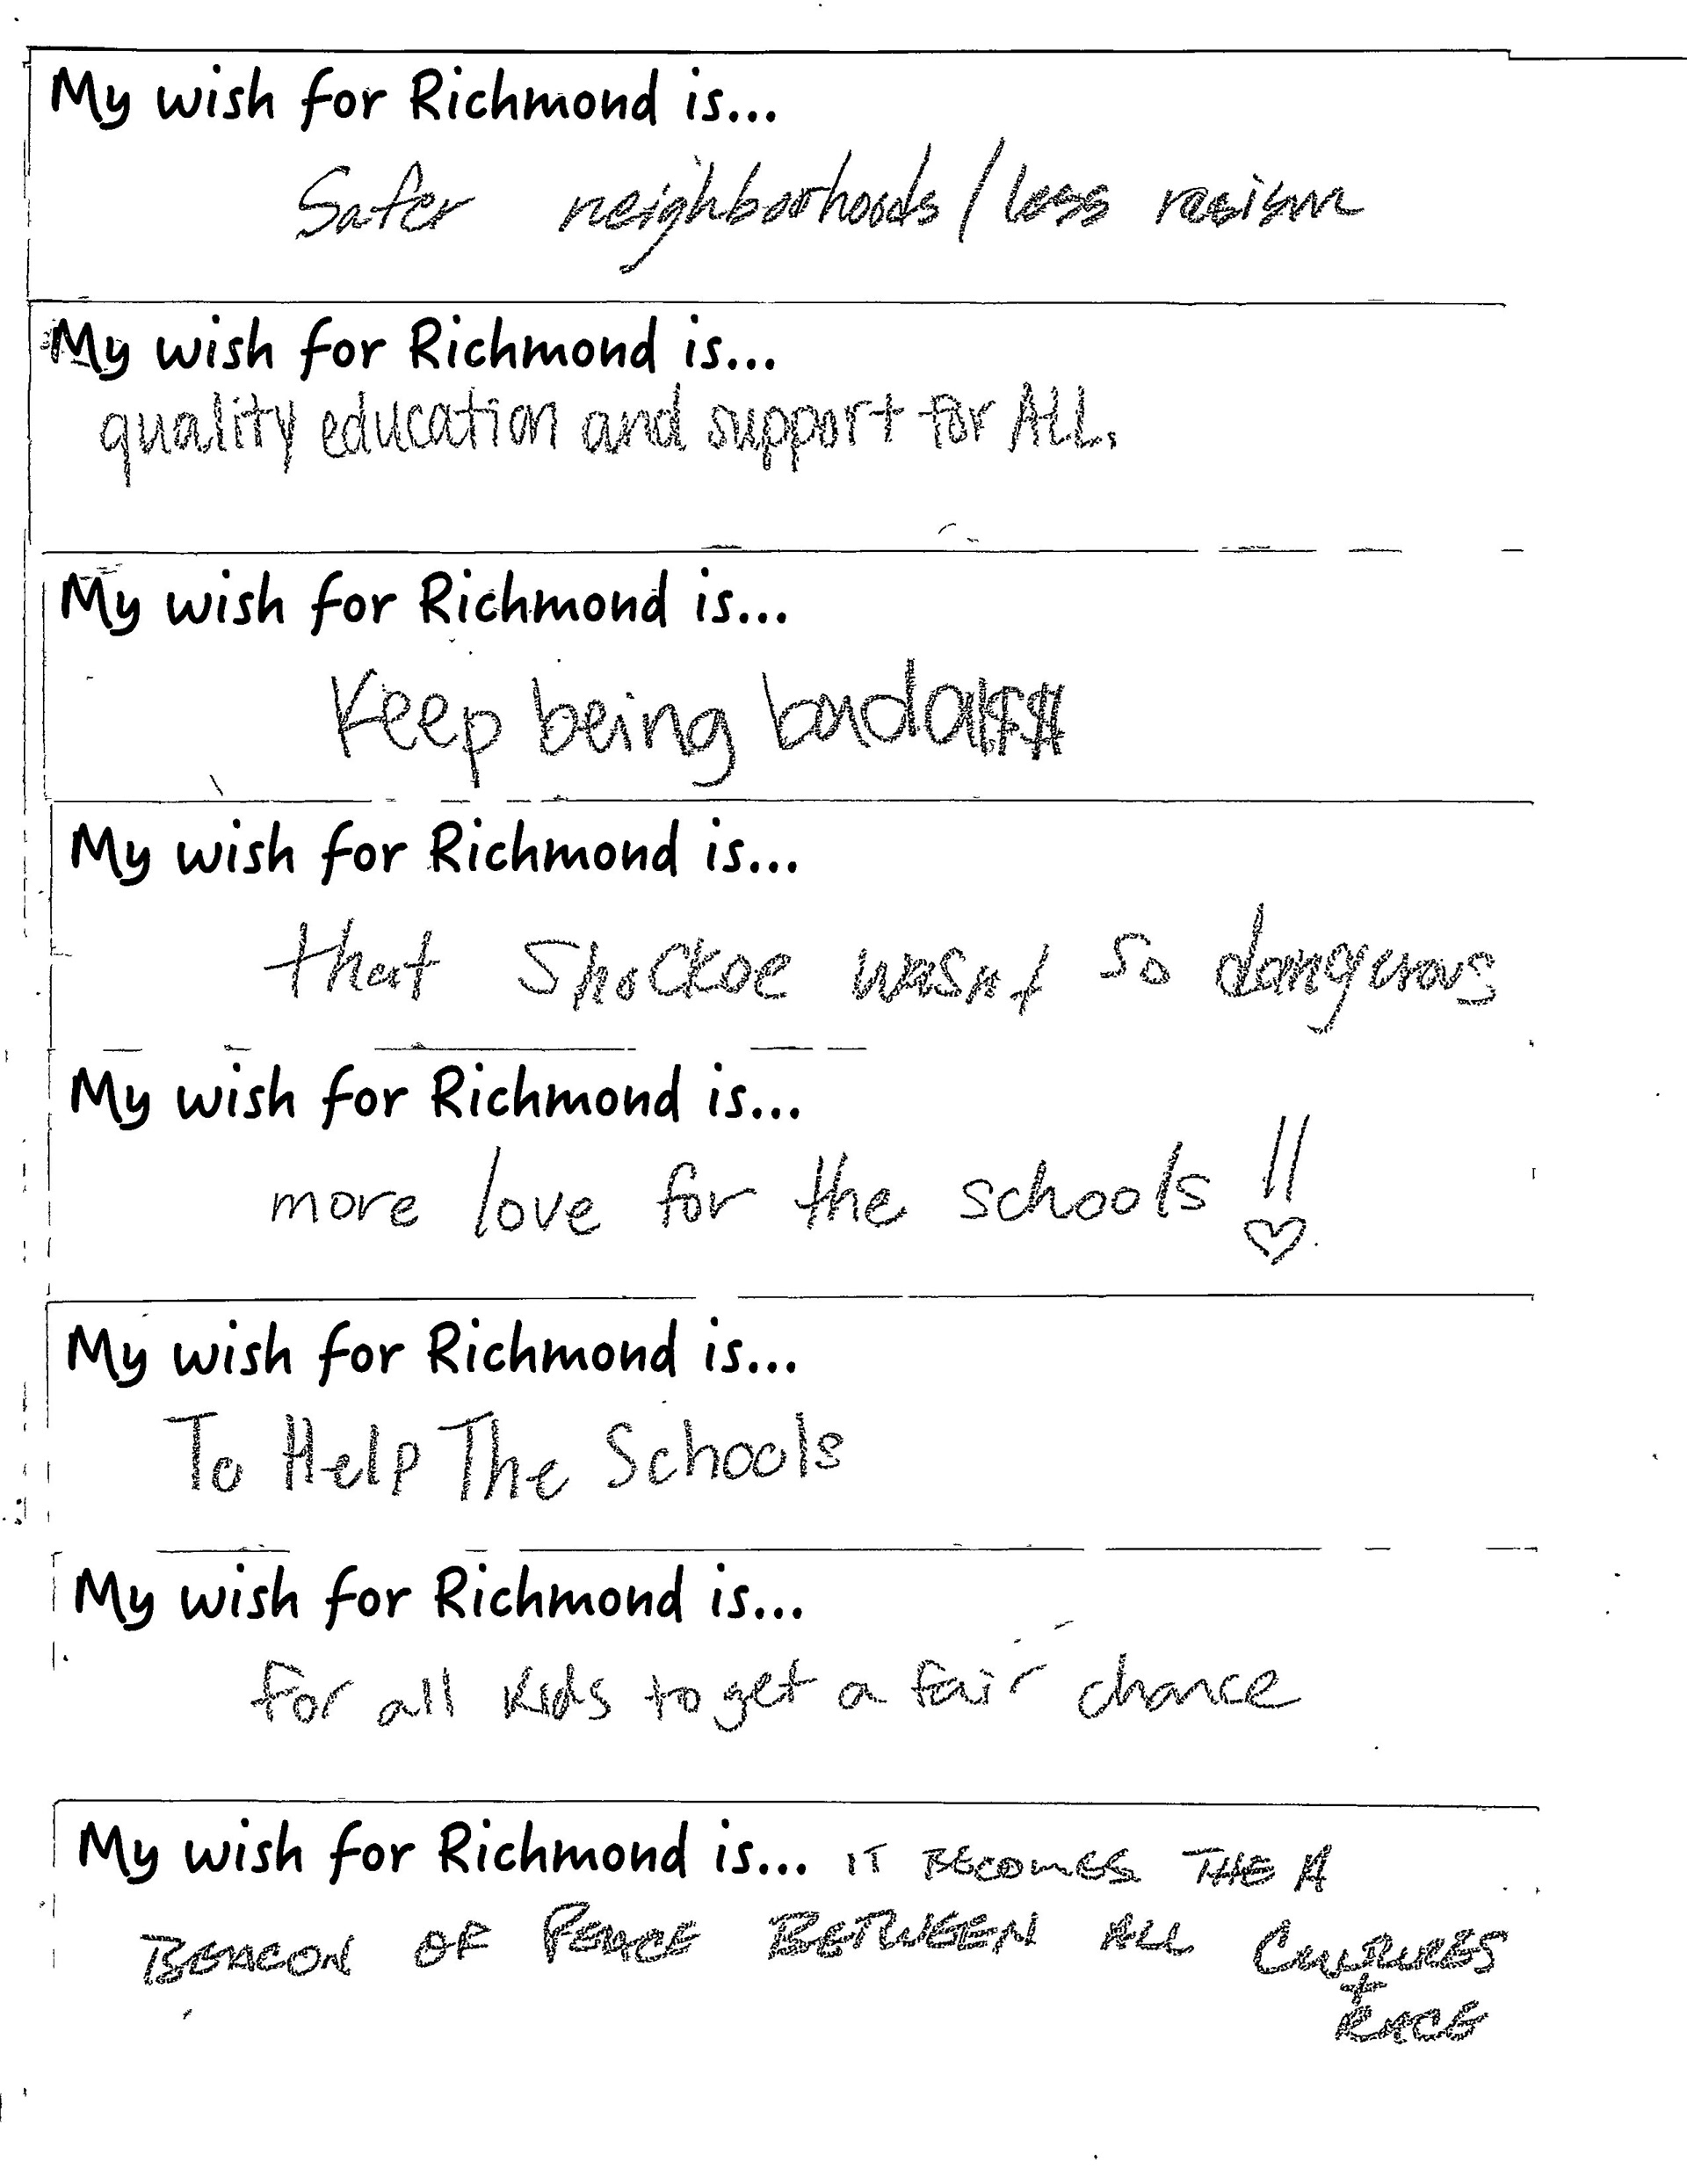 My wish for Richmond is...
Safer neighborhoods / less rasism
My wish for Richmond is...
quality education and support for ALL.
My wish for Richmond is...
Keep being bada$$
My wish for Richmond is...
that Shockoe wasnt so dangerous
My wish for Richmond is...
more love for the schools !!
My wish for Richmond is...
To Help The Schools
My wish for Richmond is...
for all kids to get a fair chance
My wish for Richmond is... IT BECOMES THE A
BEACON OF PEACE BETWEEN ALL CULTURES
+
RACE